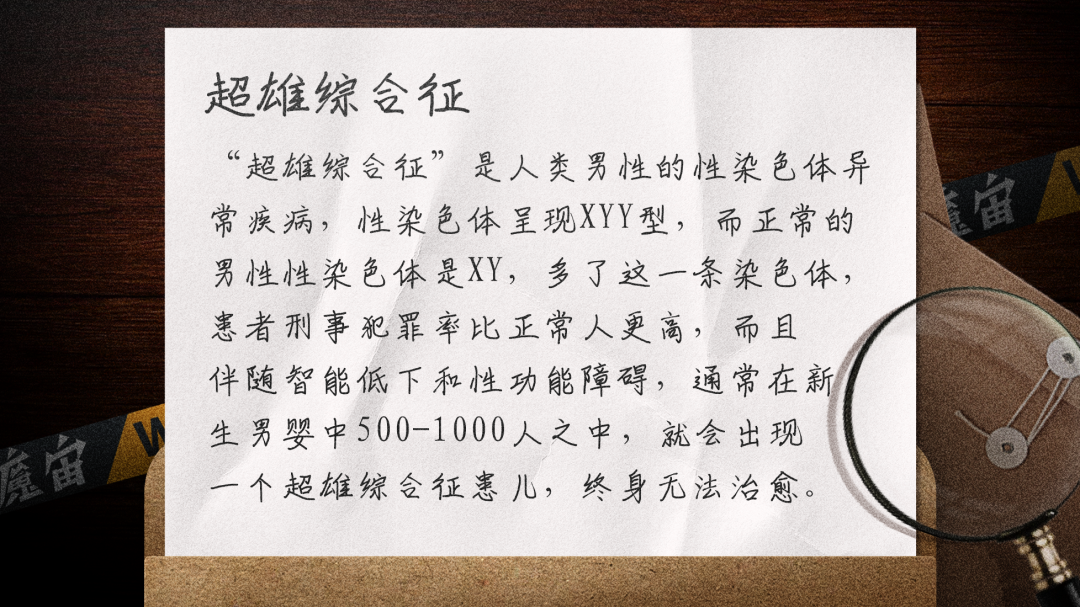 超雄综合征
“超雄综合征”是人类男性的性染色体异
常疾病，性染色体呈现XYY型，而正常的
男性性染色体是XY，多了这一条染色体，
患者刑事犯罪率比正常人更高，而且
伴随智能低下和性功能障碍，通常在新
生男婴中500-1000人之中，就会出现
一个超雄综合征患儿，终身无法治愈。
魔宙
W
魔宙
W